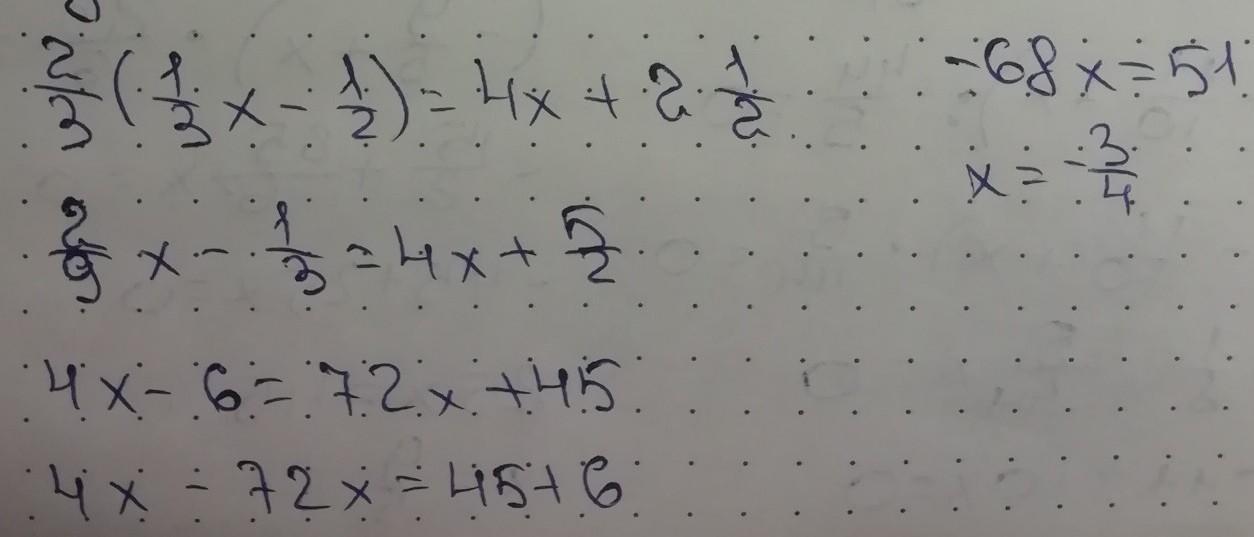 2/3 (1/3 x - 1/2) = 4x + 2 1/2
2/9 x - 1/3 = 4x + 5/2
4x - 6 = 72x + 45
4x - 72x = 45 + 6
-68x = 51
x = -3/4